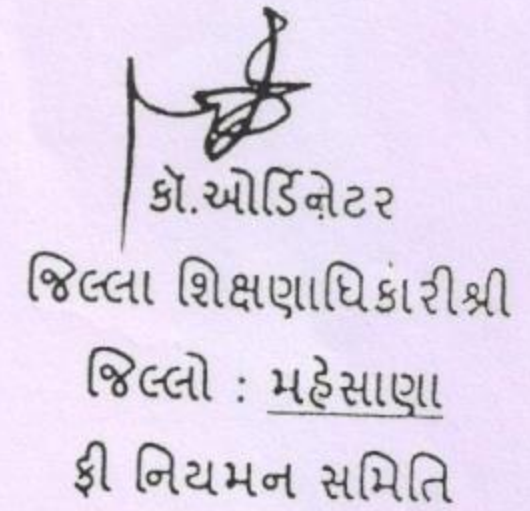 કૉ.ઓર્ડિનેટર
જિલ્લા શિક્ષણાધિકારીશ્રી
જિલ્લો : મહેસાણા
ફી નિયમન સમિતિ